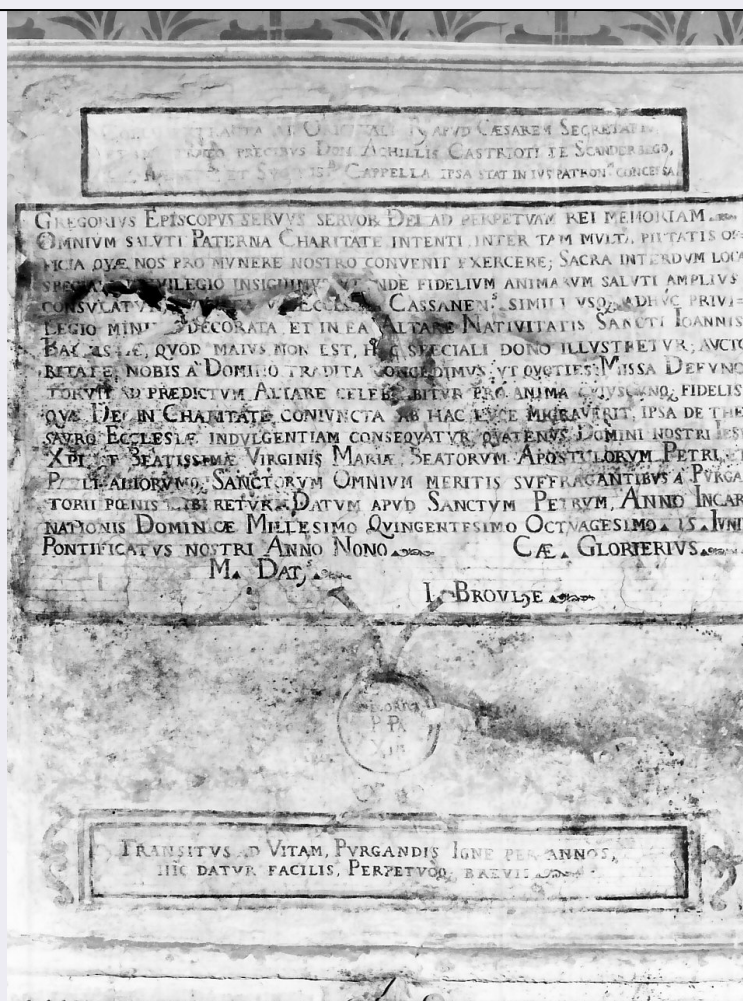 AB ORIGINALI APVD CÆSAREM
PRECIBVS DON ACHILLIS CASTRIOTI DE SCANDERBEGO,
ET CAPPELLA IPSA STAT IN IVS PATRON. CONCESSA
GREGORIVS EPISCOPVS SERVVS SERVOR DEI AD PERPETVAM REI MEMORIAM.
OMNIVM SALVTI PATERNA CHARITATE INTENTI INTER TAM MVLTA PIETATIS OF-
FICIA QVÆ NOS PRO MVNERE NOSTRO CONVENIT EXERCERE; SACRA INTERDVM LOCA
SPECIALI PRIVILEGIO INSIGNIMVS VT INDE FIDELIVM ANIMARVM SALVTI AMPLIVS
CONSVLATVR, ECCLES. CASSANEN. SIMILI VSQ. ADHVC PRIVI=
LEGIO MINIME DECORATA ET IN EA ALTARE NATIVITATIS SANCTI IOANNIS
BAPTISTÆ, QVOD MAIVS NON EST, HOC SPECIALI DONO ILLVSTRETVR; AVCTO
RITATE NOBIS A DOMINO TRADITA CONCEDIMVS, VT QVOTIES MISSA DEFVNC
TORVM AD PRÆDICTVM ALTARE CELEBRABITVR PRO ANIMA CVIVSCVNQ. FIDELIS
QVÆ DEO IN CHARITATE CONIVNCTA AB HAC LVCE MIGRAVERIT, IPSA DE THE
SAVRO ECCLESIÆ INDVLGENTIAM CONSEQVATVR, QVATENVS DOMINI NOSTRI IESV
XPI ET BEATISSIMÆ VIRGINIS MARIÆ, BEATORVM APOSTOLORVM PETRI, ET
PAVLI ALIORVMQ. SANCTORVM OMNIVM MERITIS SVFFRAGANTIBVS A PVRGA
TORII POENIS LIBERETVR. DATVM APVD SANCTVM PETRVM, ANNO INCAR
NATIONIS DOMINICÆ MILLESIMO QVINGENTESIMO OCTVAGESIMO. 15. IVNII
PONTIFICATVS NOSTRI ANNO NONO. CÆ. GLORIERIVS.
M. DAT.
GREGORIVS
PAPA
XIII
TRANSITVS AD VITAM, PVRGANDIS IGNE PER ANNOS,
HIC DATVR FACILIS, PERPETVOQ. BREVIS